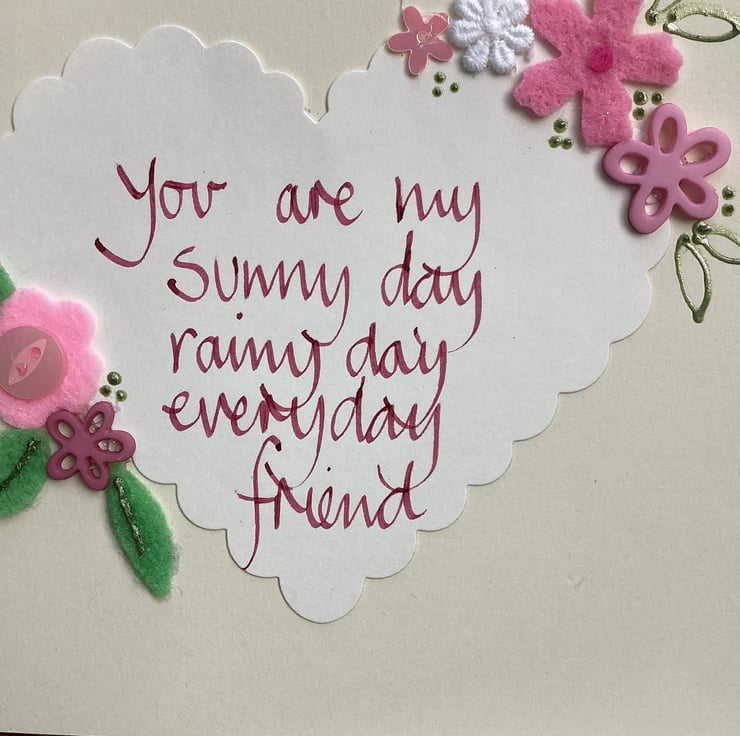 You are my
sunny day
rainy day
everyday
friend